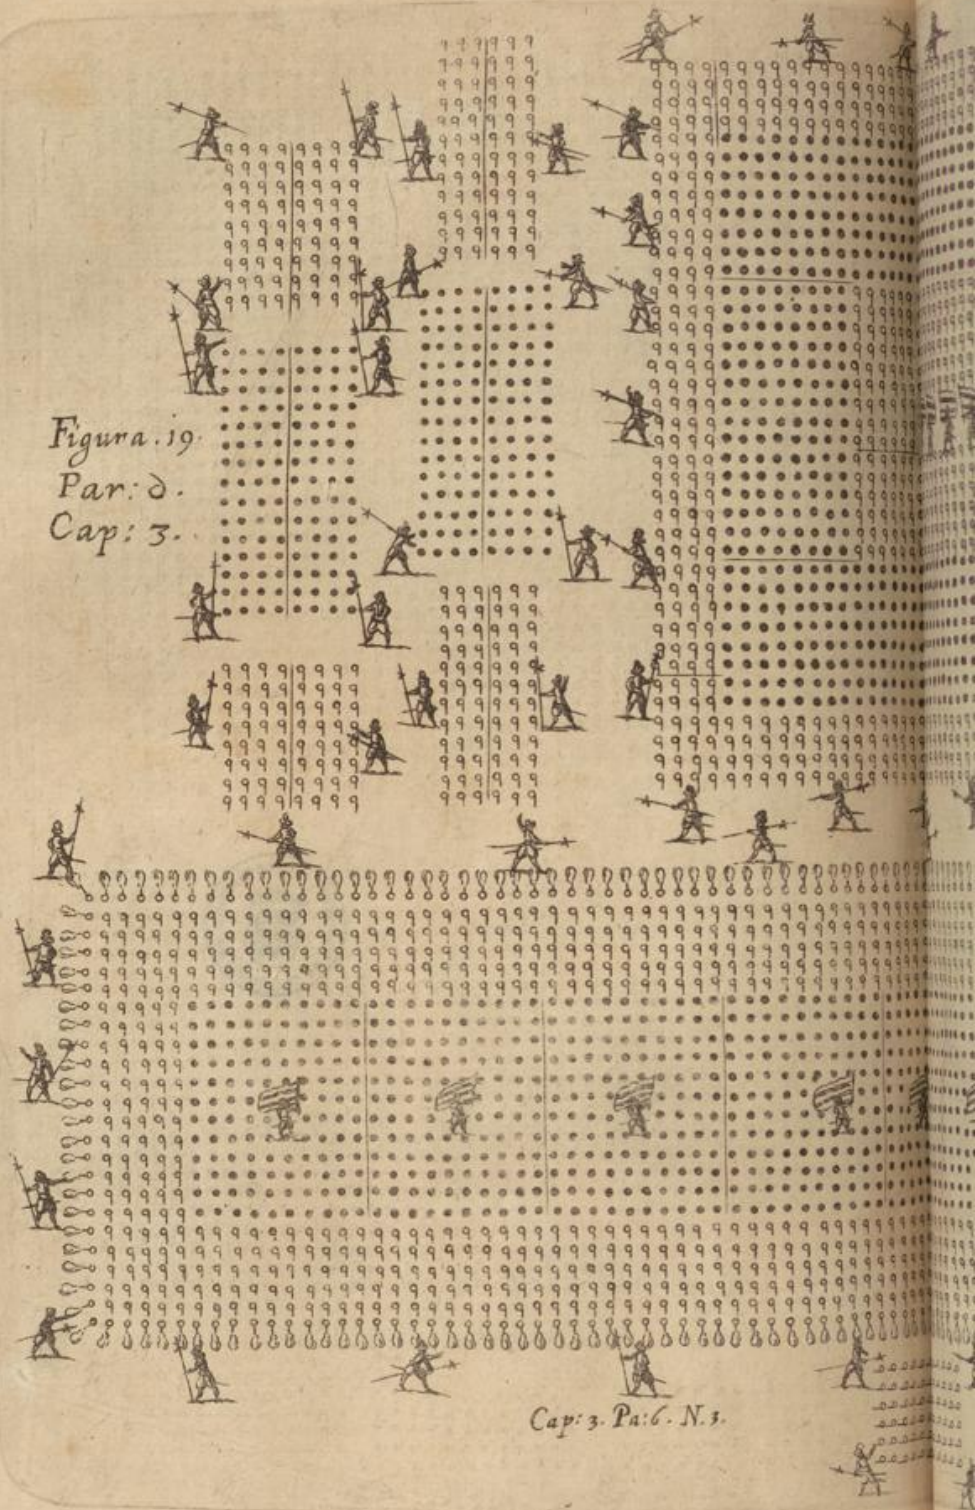 Figura. 19.
Par: d.
Cap: 3.
Cap: 3. Pa: 6. N. 3.